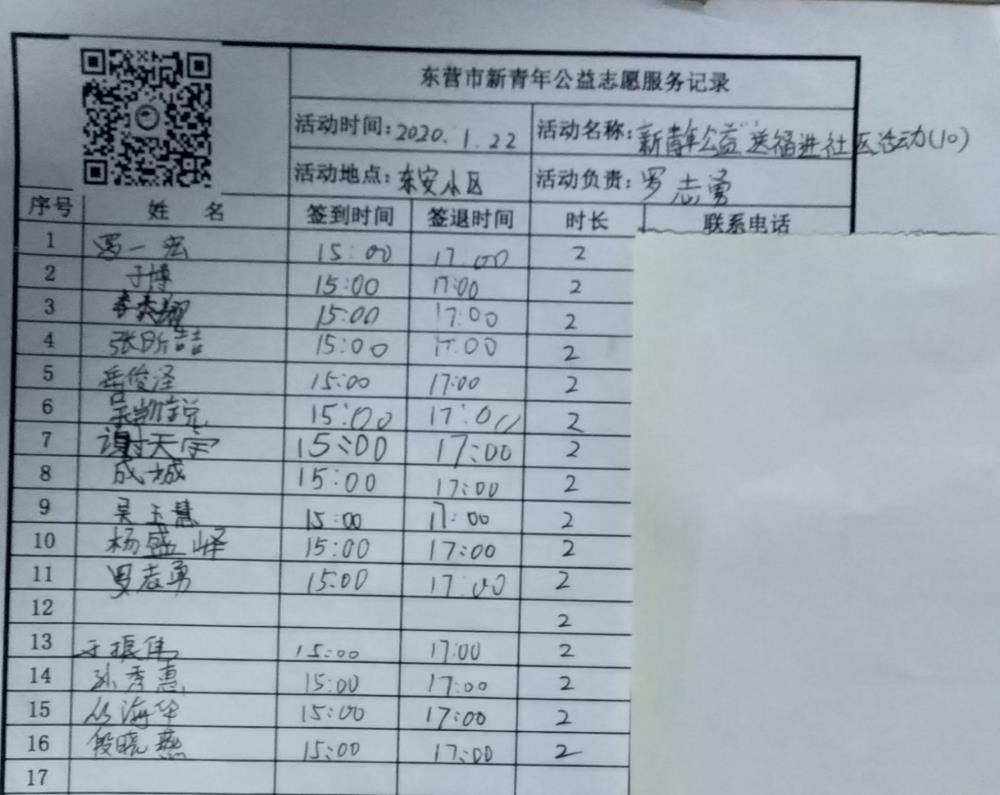 东营市新青年公益志愿服务记录
活动时间：2020.1.22 活动名称：新青年公益"送福进社区活动(10)
活动地点：东安小区 活动负责：罗志勇
序号 姓名 签到时间 签退时间 时长 联系电话
1 罗一宏 15:00 17:00 2
2 于博 15:00 17:00 2
3 15:00 17:00 2
4 张昕喆 15:00 17:00 2
5 岳俊泽 15:00 17:00 2
6 吴凯锐 15:00 17:00 2
7 谢天宇 15:00 17:00 2
8 成城 15:00 17:00 2
9 吴玉慧 15:00 17:00 2
10 杨盛峄 15:00 17:00 2
11 罗志勇 15:00 17:00 2
12 2
13 于振伟 15:00 17:00 2
14 孙秀惠 15:00 17:00 2
15 丛海华 15:00 17:00 2
16 段晓燕 15:00 17:00 2
17